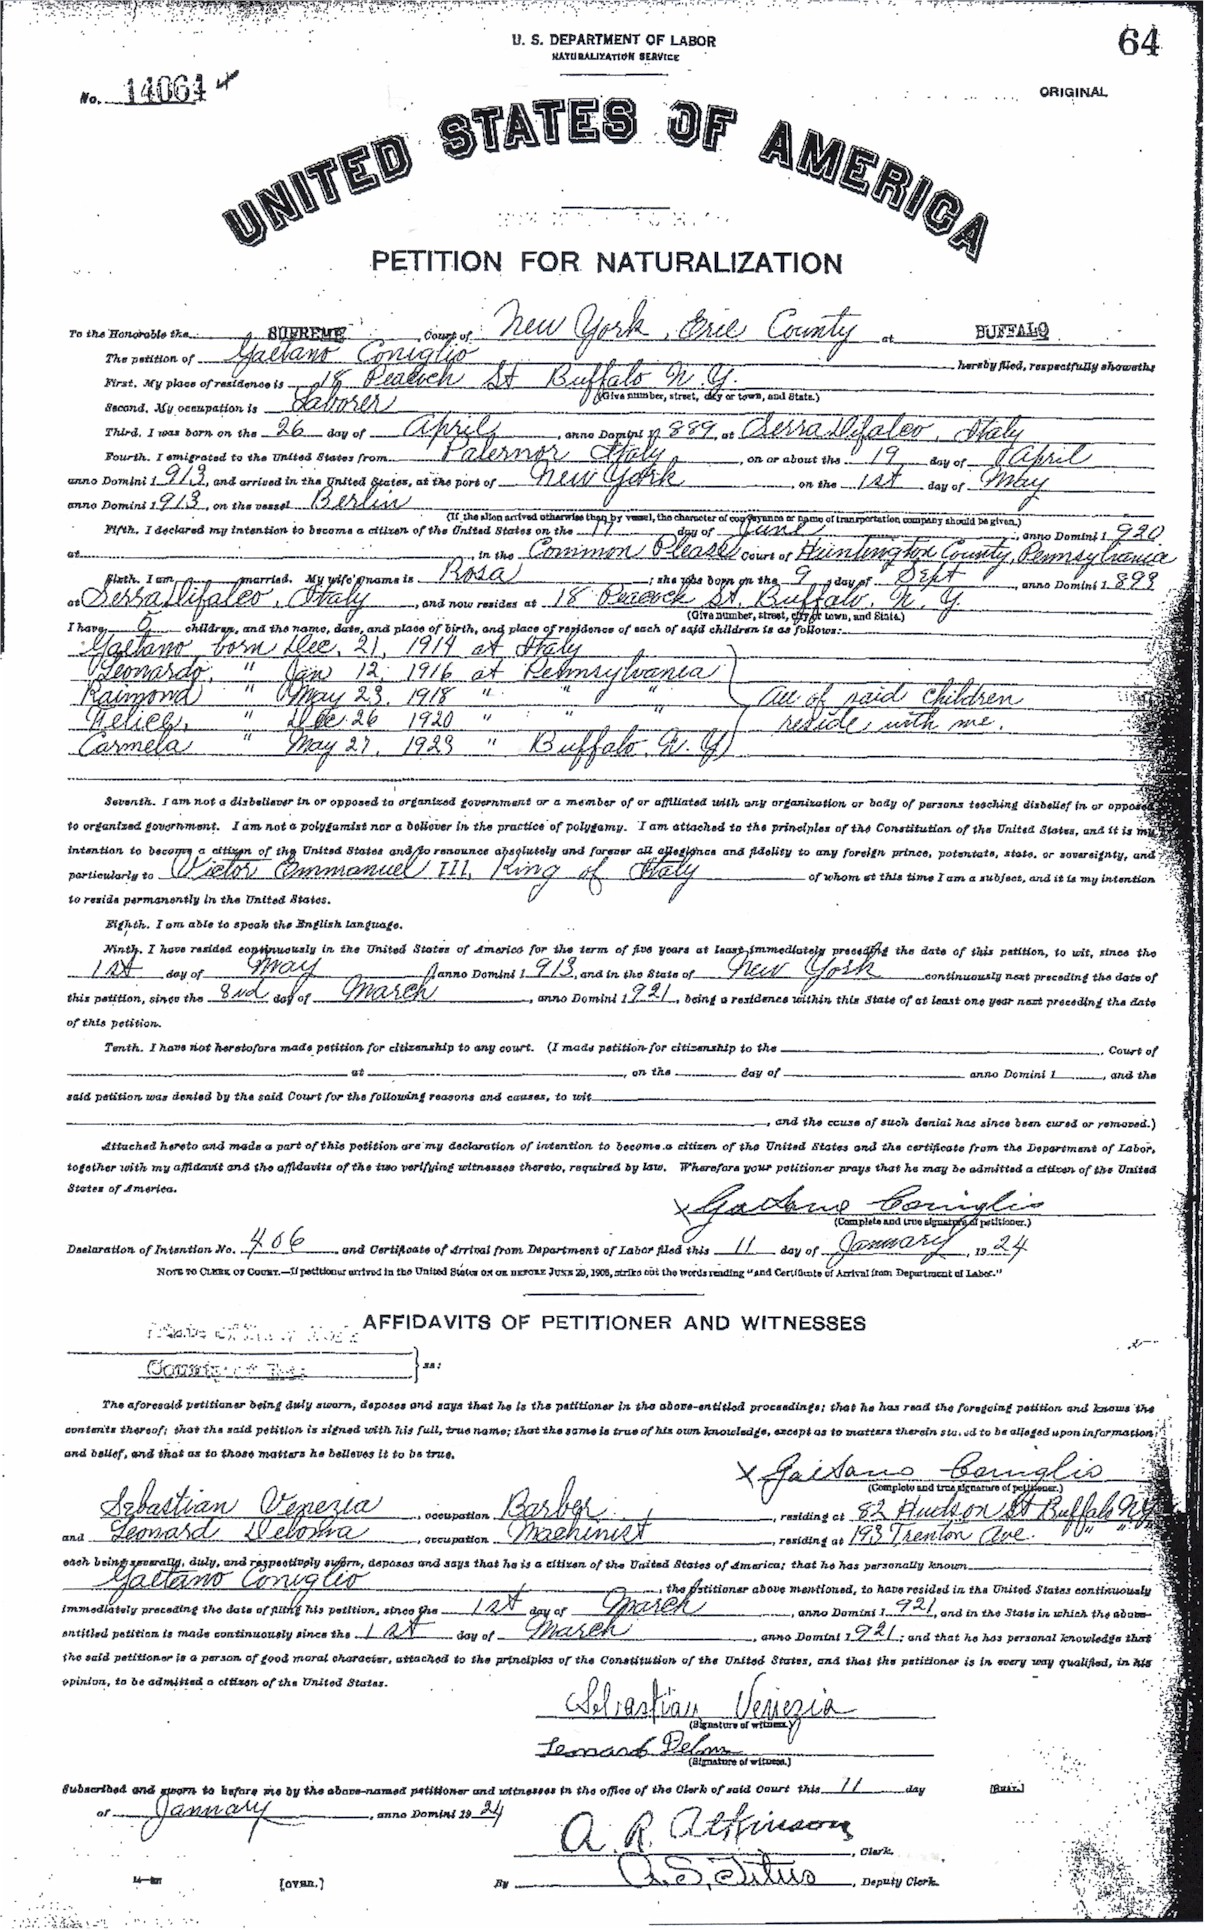 U. S. DEPARTMENT OF LABOR
NATURALIZATION SERVICE
64
No. 14064
ORIGINAL
UNITED STATES OF AMERICA
PETITION FOR NATURALIZATION
To the Honorable the SUPREME Court of New York, Erie County at BUFFALO
The petition of Gaetano Coniglio hereby filed, respectfully showeth:
First. My place of residence is 18 Peacock St Buffalo N.Y.
(Give number, street, city or town, and State.)
Second. My occupation is Laborer
Third. I was born on the 26 day of April, anno Domini 1889, at Serradifalco, Italy
Fourth. I emigrated to the United States from Palermor Italy, on or about the 19 day of April
anno Domini 1913, and arrived in the United States, at the port of New York, on the 1st day of May
anno Domini 1913, on the vessel Berlin
(If the alien arrived otherwise than by vessel, the character of conveyance or name of transportation company should be given.)
Fifth. I declared my intention to become a citizen of the United States on the 17 day of June, anno Domini 1920
at , in the Common Pleas Court of Huntington County, Pennsylvania
Sixth. I am married. My wife's name is Rosa; she was born on the 9 day of Sept, anno Domini 1893
at Serradifalco, Italy, and now resides at 18 Peacock St. Buffalo, N.Y.
(Give number, street, city or town, and State.)
I have children, and the name, date, and place of birth, and place of residence of each of said children is as follows:
Gaetano born Dec. 21, 1914 at Italy
Leonardo, " Jan 12, 1916 at Pennsylvania
Raimond " May 23, 1918 " " " All of said children
Felice, " Dec 26 1920 " " " reside with me.
Carmela " May 27, 1923 " Buffalo, N.Y.
Seventh. I am not a disbeliever in or opposed to organized government or a member of or affiliated with any organization or body of persons teaching disbelief in or opposed
to organized government. I am not a polygamist nor a believer in the practice of polygamy. I am attached to the principles of the Constitution of the United States, and it is my
intention to become a citizen of the United States and to renounce absolutely and forever all allegiance and fidelity to any foreign prince, potentate, state, or sovereignty, and
particularly to Victor Emmanuel III, King of Italy of whom at this time I am a subject, and it is my intention
to reside permanently in the United States.
Eighth. I am able to speak the English language.
Ninth. I have resided continuously in the United States of America for the term of five years at least immediately preceding the date of this petition, to wit, since the
1st day of May anno Domini 1913, and in the State of New York continuously next preceding the date of
this petition, since the day of March, anno Domini 1921, being a residence within this State of at least one year next preceding the date
of this petition.
Tenth. I have not heretofore made petition for citizenship to any court. (I made petition for citizenship to the Court of
at , on the day of anno Domini 1 , and the
said petition was denied by the said Court for the following reasons and causes, to wit
, and the cause of such denial has since been cured or removed.)
Attached hereto and made a part of this petition are my declaration of intention to become a citizen of the United States and the certificate from the Department of Labor,
together with my affidavit and the affidavits of the two verifying witnesses thereto, required by law. Wherefore your petitioner prays that he may be admitted a citizen of the United
States of America.
x Gaetano Coniglio
(Complete and true signature of petitioner.)
Declaration of Intention No. 406 and Certificate of Arrival from Department of Labor filed this 11 day of January, 1924
NOTE TO CLERK OF COURT.—If petitioner arrived in the United States ON OR BEFORE JUNE 29, 1906, strike out the words reading "and Certificate of Arrival from Department of Labor."
AFFIDAVITS OF PETITIONER AND WITNESSES
State of New York
County of Erie } ss:
The aforesaid petitioner being duly sworn, deposes and says that he is the petitioner in the above-entitled proceedings; that he has read the foregoing petition and knows the
contents thereof; that the said petition is signed with his full, true name; that the same is true of his own knowledge, except as to matters therein stated to be alleged upon information
and belief, and that as to those matters he believes it to be true.
x Gaetano Coniglio
(Complete and true signature of petitioner.)
Sebastian Venezia, occupation Barber, residing at 82 Hudson St Buffalo NY
and Leonard Deloma, occupation Machinist, residing at 193 Trenton Ave. " "
each being severally, duly, and respectively sworn, deposes and says that he is a citizen of the United States of America; that he has personally known
Gaetano Coniglio, the petitioner above mentioned, to have resided in the United States continuously
immediately preceding the date of filing his petition, since the 1st day of March, anno Domini 1921, and in the State in which the above-
entitled petition is made continuously since the 1st day of March, anno Domini 1921; and that he has personal knowledge that
the said petitioner is a person of good moral character, attached to the principles of the Constitution of the United States, and that the petitioner is in every way qualified, in his
opinion, to be admitted a citizen of the United States.
Sebastian Venezia
(Signature of witness.)
Leonard
(Signature of witness.)
Subscribed and sworn to before me by the above-named petitioner and witnesses in the office of the Clerk of said Court this 11 day [SEAL.]
of January, anno Domini 1924
A. R. Atkinson, Clerk.
[OVER.] By A. S. Titus, Deputy Clerk.